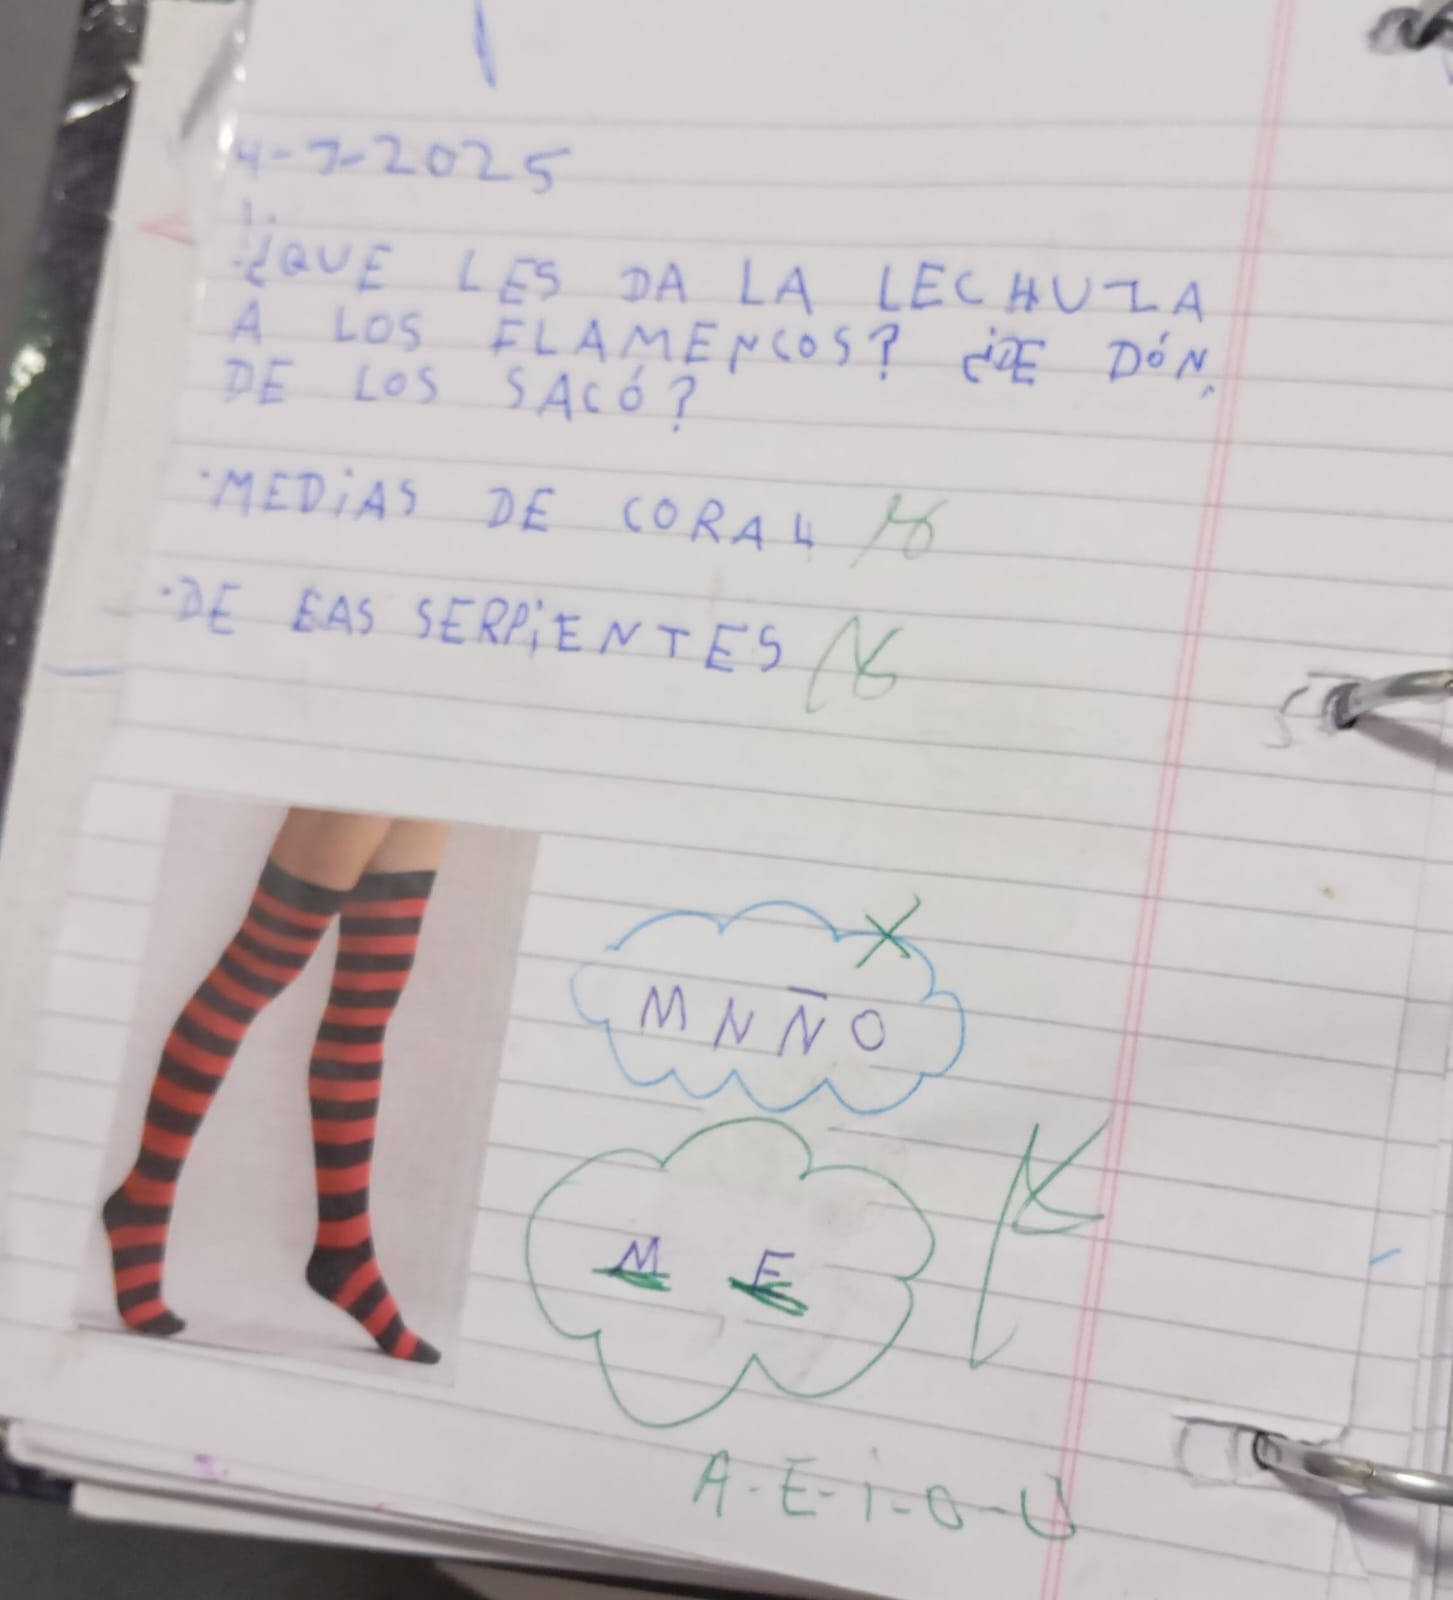 4-7-2025
1.
¿QUE LES DA LA LECHUZA
A LOS FLAMENCOS? ¿DE DÓN
DE LOS SACÓ?
·MEDIAS DE CORAL
·DE LAS SERPIENTES
M N Ñ O
M E
A-E-i-O-U